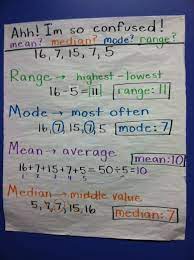 Ahh! I'm so confused!
mean? median? mode? range?
16, 7, 15, 7, 5
Range → highest - lowest
16-5=11 range: 11
Mode → most often
16, 7, 15, 7, 5 mode: 7
Mean → average mean: 10
16+7+15+7+5=50÷5=10
1 2 3 4 5
Median → middle value
5, 7, 7, 15, 16 median: 7